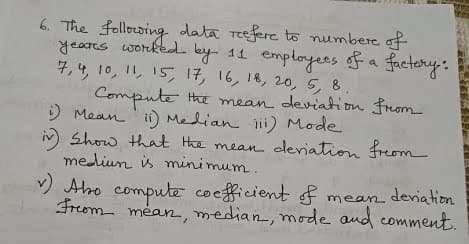 6. The following data refere to numbere of
years worked by 11 employees of a factory:
7, 4, 10, 11, 15, 17, 16, 18, 20, 5, 8.
Compute the mean deviation from
i) Mean ii) Median iii) Mode
iv) Show that the mean deviation from
medium is minimum.
v) Also compute coefficient of mean deviation
from mean, median, mode and comment.